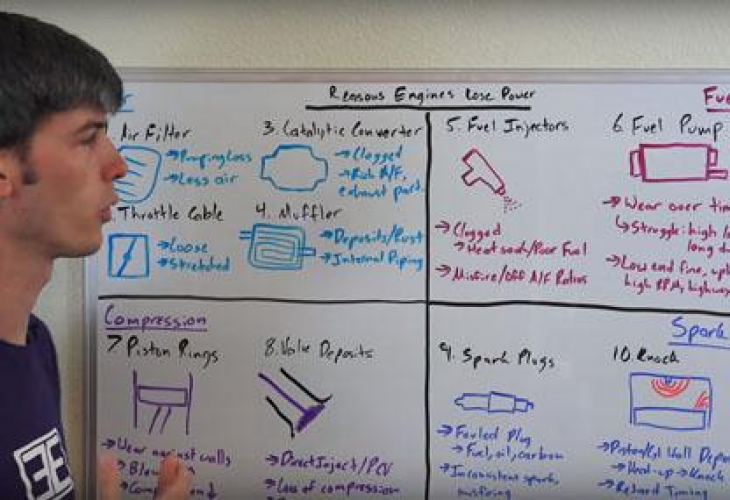 Reasons Engines Lose Power
Air Filter
→ Pumping Loss
→ Less air
Throttle Cable
→ Loose
→ Stretched
3. Catalytic Converter
→ Clogged
→ Rich A/F,
exhaust part.
4. Muffler
→ Deposits/Rust
→ Internal Piping
Fue
5. Fuel Injectors
→ Clogged
→ Heat soak/Poor Fuel
→ Misfire/Off A/F Ratios
6. Fuel Pump
→ Wear over tim
↳ Struggle: high l
long du
→ Low end fine, up
high RPM, highw
Compression
7 Piston Rings
→ Wear against walls
→ Blow
→ Comp
8. Valve Deposits
→ Direct Inject/PCV
→ Loss of compression
Spark
9. Spark Plugs
→ Fouled Plug
→ Fuel, oil, carbon
→ Inconsistent spark,
misfiring
10. Knock
→ Piston/Cyl Wall Depos
→ Heat-up → Knock
→ Retard Timing